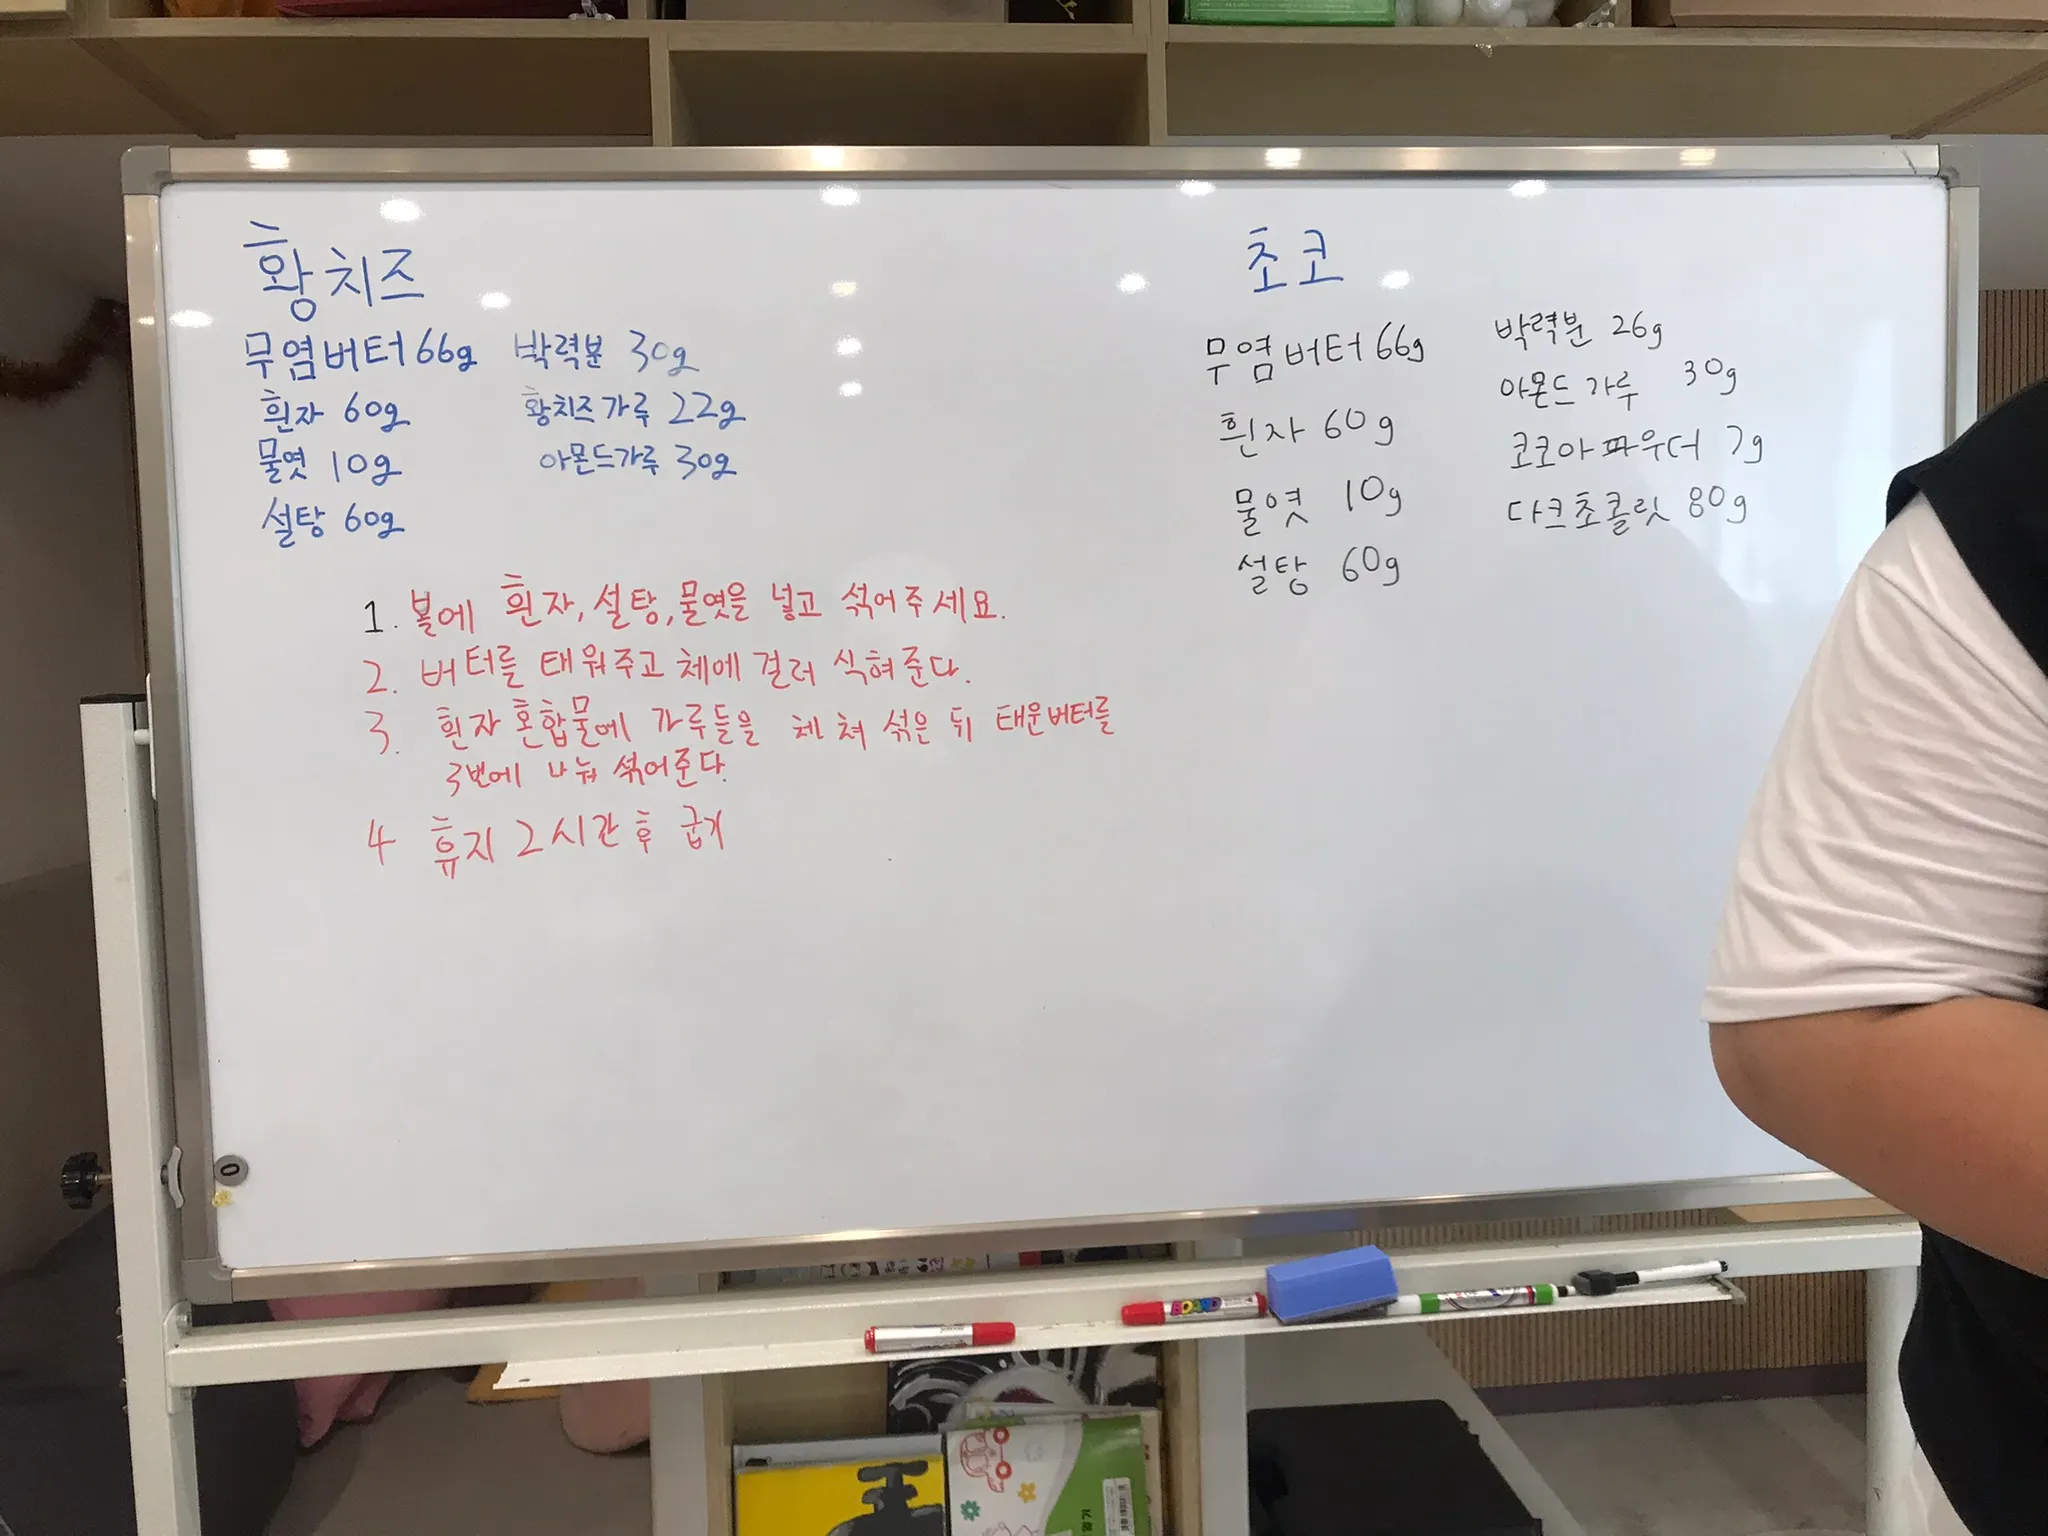 황치즈
무염버터 66g 박력분 30g
흰자 60g 황치즈가루 22g
물엿 10g 아몬드가루 30g
설탕 60g
1. 볼에 흰자, 설탕, 물엿을 넣고 섞어주세요.
2. 버터를 태워주고 체에 걸러 식혀준다.
3. 흰자 혼합물에 가루들을 체쳐 섞은 뒤 태운버터를
3번에 나눠 섞어준다.
4 휴지 2시간 후 굽기
초코
무염버터 66g 박력분 26g
흰자 60g 아몬드가루 30g
물엿 10g 코코아파우더 7g
설탕 60g 다크초콜릿 80g
BOARD